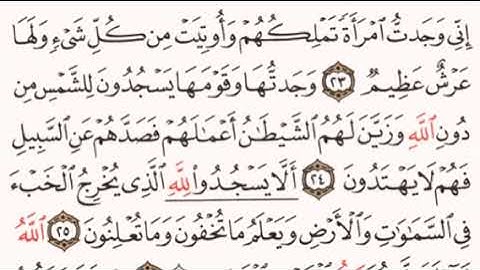 إِنِّي وَجَدتُّ ٱمْرَأَةً تَمْلِكُهُمْ وَأُوتِيَتْ مِن كُلِّ شَيْءٍ وَلَهَا
عَرْشٌ عَظِيمٌ ٢٣ وَجَدتُّهَا وَقَوْمَهَا يَسْجُدُونَ لِلشَّمْسِ مِن
دُونِ ٱللَّهِ وَزَيَّنَ لَهُمُ ٱلشَّيْطَٰنُ أَعْمَٰلَهُمْ فَصَدَّهُمْ عَنِ ٱلسَّبِيلِ
فَهُمْ لَا يَهْتَدُونَ ٢٤ أَلَّا يَسْجُدُوا۟ لِلَّهِ ٱلَّذِي يُخْرِجُ ٱلْخَبْءَ
فِي ٱلسَّمَٰوَٰتِ وَٱلْأَرْضِ وَيَعْلَمُ مَا تُخْفُونَ وَمَا تُعْلِنُونَ ٢٥ ٱللَّهُ